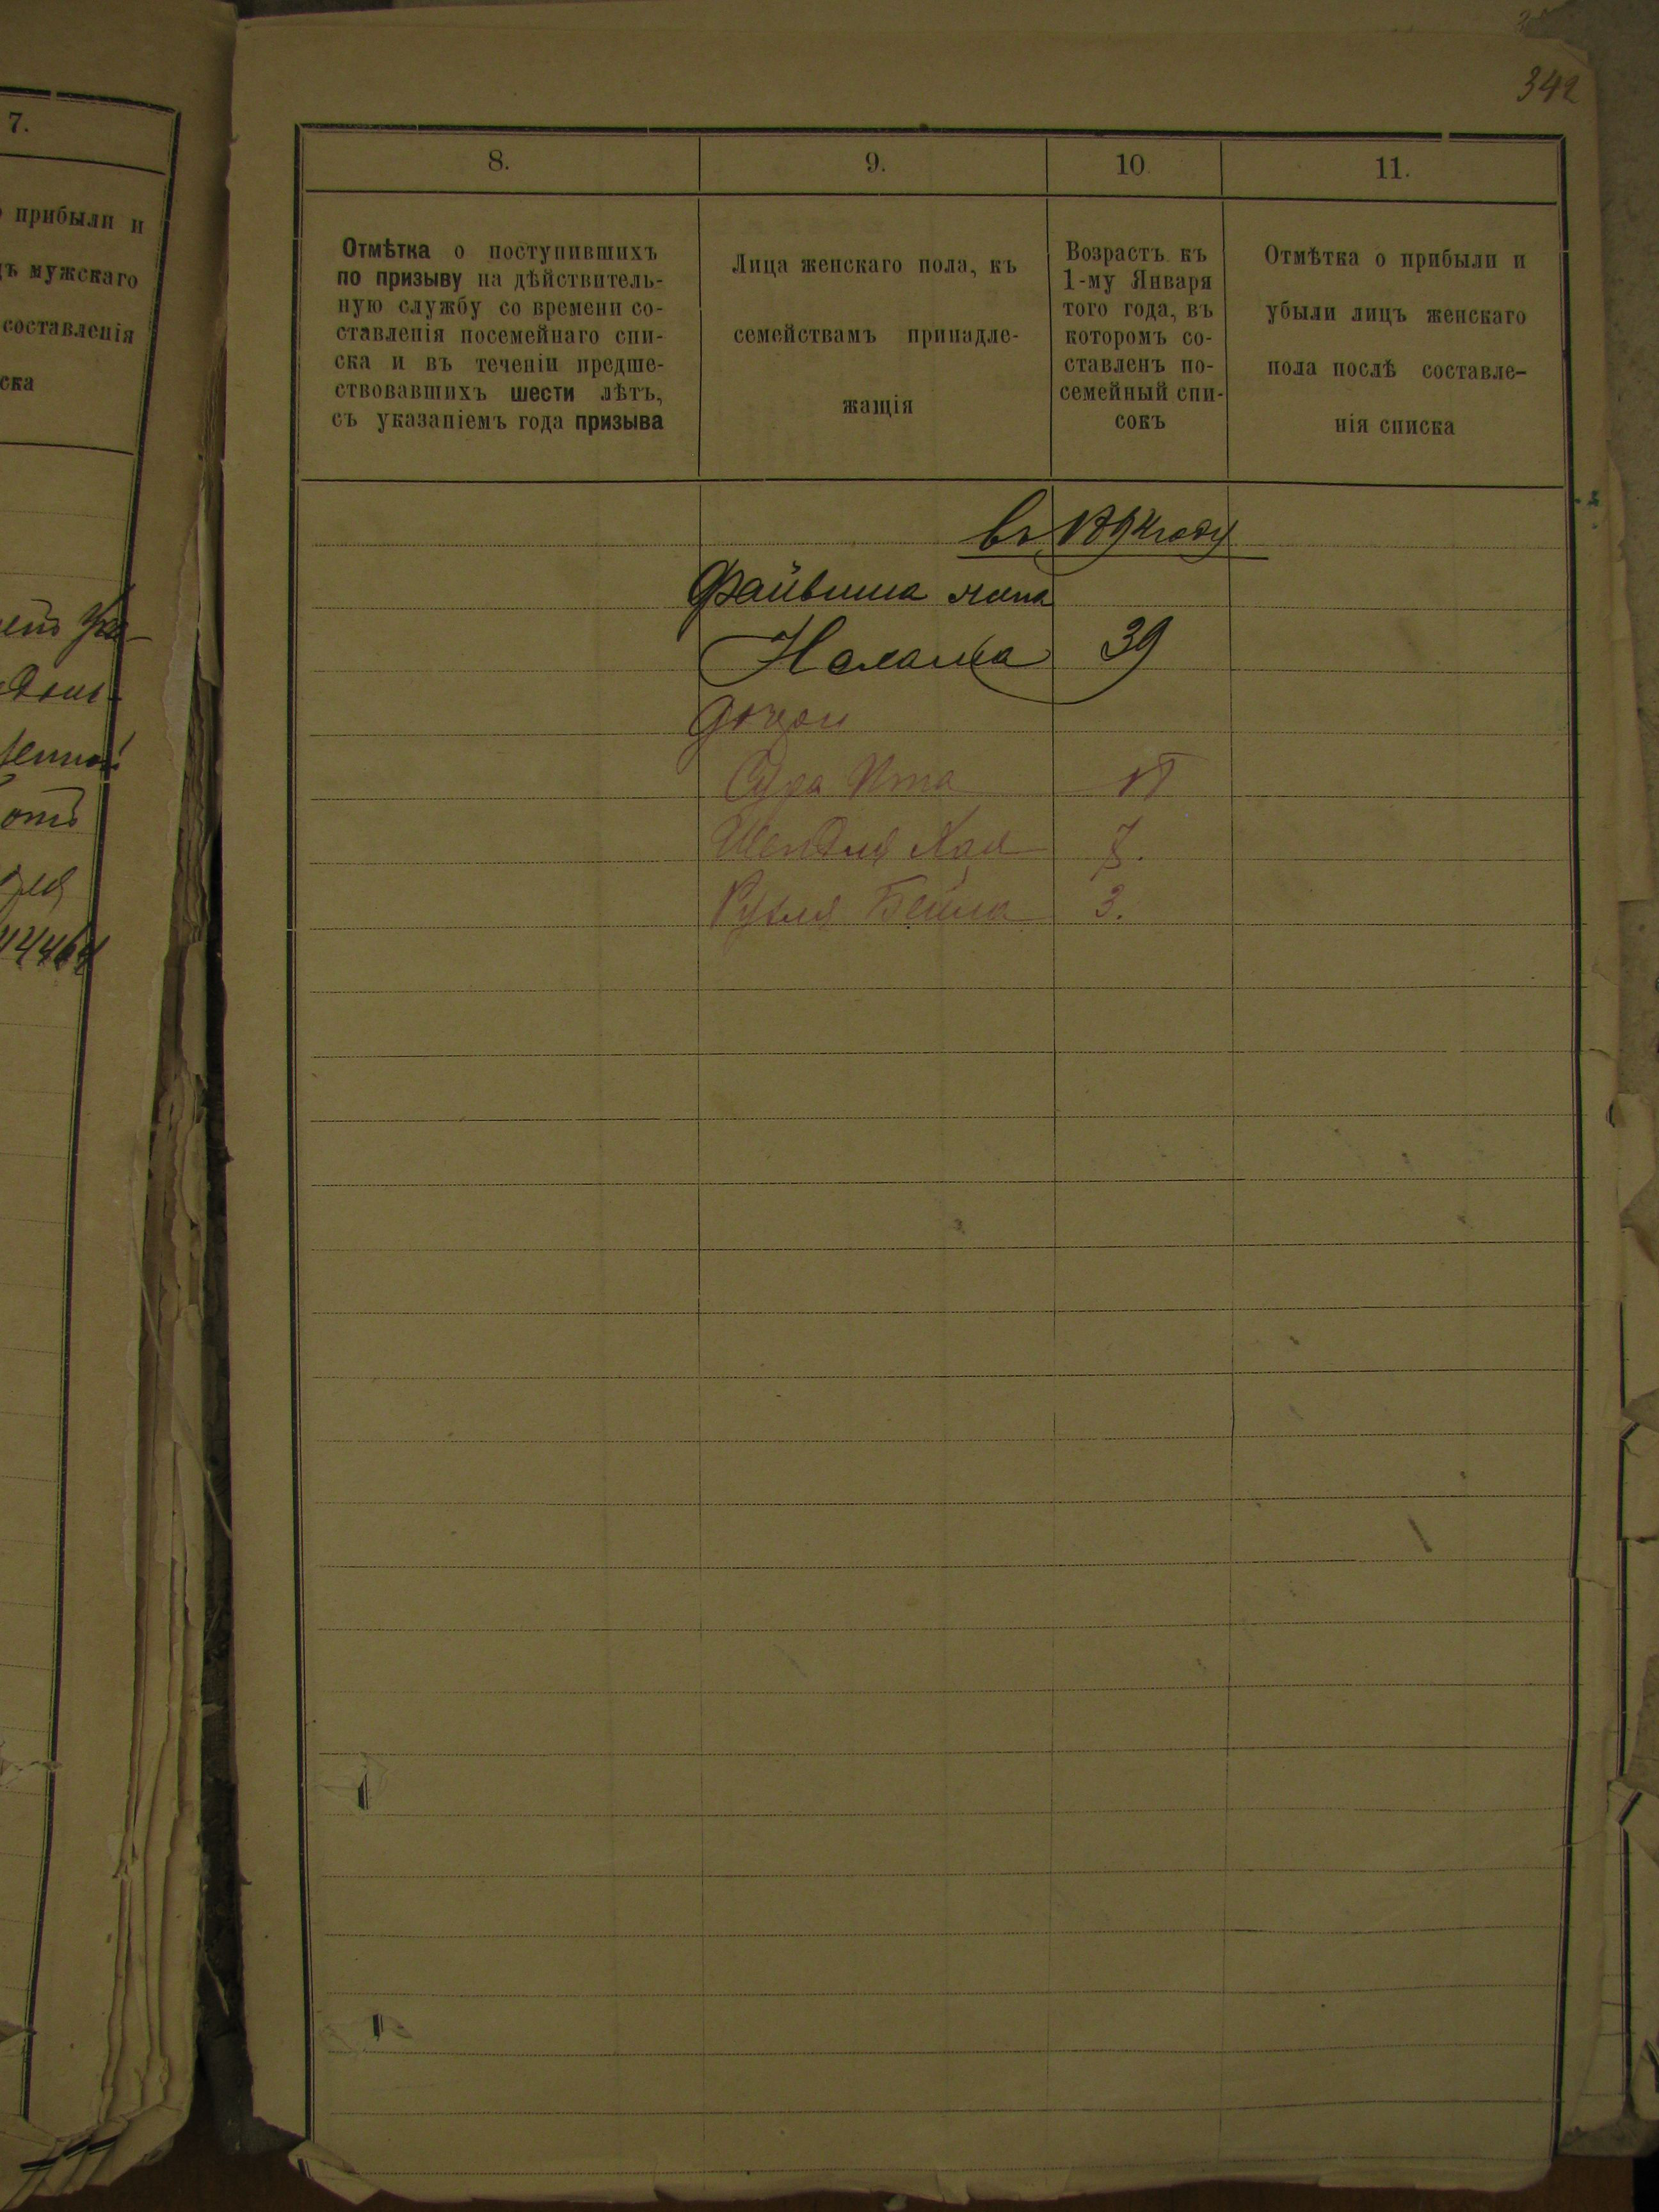 7.
прибыли и
ъ мужскаго
составленія
ска
омъ
342
8.
9.
10.
11.
Отмѣтка о поступившихъ
по призыву на дѣйствитель-
ную службу со времени со-
ставленія посемейнаго спи-
ска и въ теченіи предше-
ствовавшихъ шести лѣтъ,
съ указаніемъ года призыва
Лица женскаго пола, къ
семействамъ принадле-
жащія
Возрастъ къ
1-му Января
того года, въ
которомъ со-
ставленъ по-
семейный спи-
сокъ
Отмѣтка о прибыли и
убыли лицъ женскаго
пола послѣ составле-
нія списка
въ 1894 году
Файвиша жена
39
дочери
Сура Ита
Шендля Хая
Рухля Бейла 3.